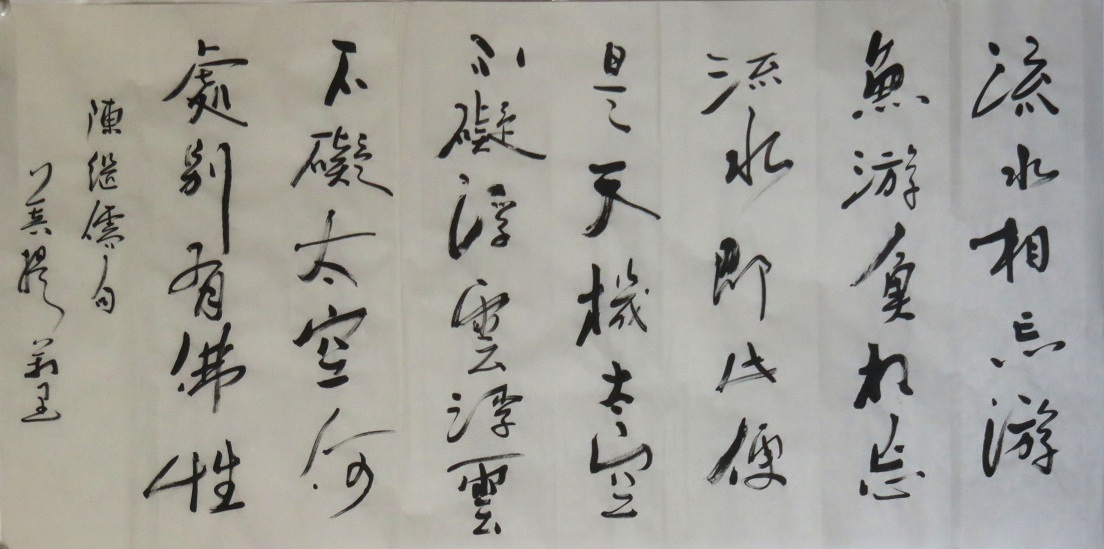 流水相忘游
魚游魚相忘
流水即此便
是天機太空
不礙浮雲浮雲
不礙太空何
處別有佛性
陳繼儒句